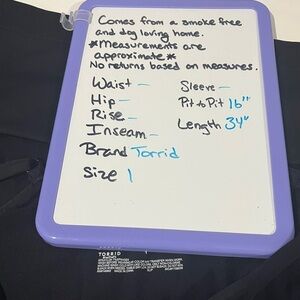 Comes from a smoke free
and dog loving home.
*Measurements are
approximate*
No returns based on measures.
Waist -
Hip -
Rise -
Inseam -
Sleeve -
Pit to Pit 16"
Length 34"
Brand Torrid
Size 1
TORRID